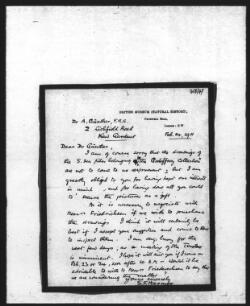 BRITISH MUSEUM (NATURAL HISTORY),
CROMWELL ROAD,
LONDON: S.W.
Dr A. Günther, F.R.S.
2 Lichfield Road
Kew Gardens
Feb. 1911
Dear Dr Günther,
I am of course sorry that the drawings of
the S. Sea fishes belonging to the Godeffroy Collection
are not to come to us; but I am
greatly obliged to you for having kept us
in mind, and for having done all you could
to secure the pictures as a gift.
As it is necessary to negotiate with
Messrs Friederichsen if we wish to purchase
the drawings I think it will certainly be
best if I accept your suggestion and come to Kew
to inspect them. I am very busy for the
next few days, as a meeting of the Trustees
is imminent. I hope it will suit you if I come on
Feb. 23 or
advisable to write to Messrs Friederichsen to say that
we are considering the matter.